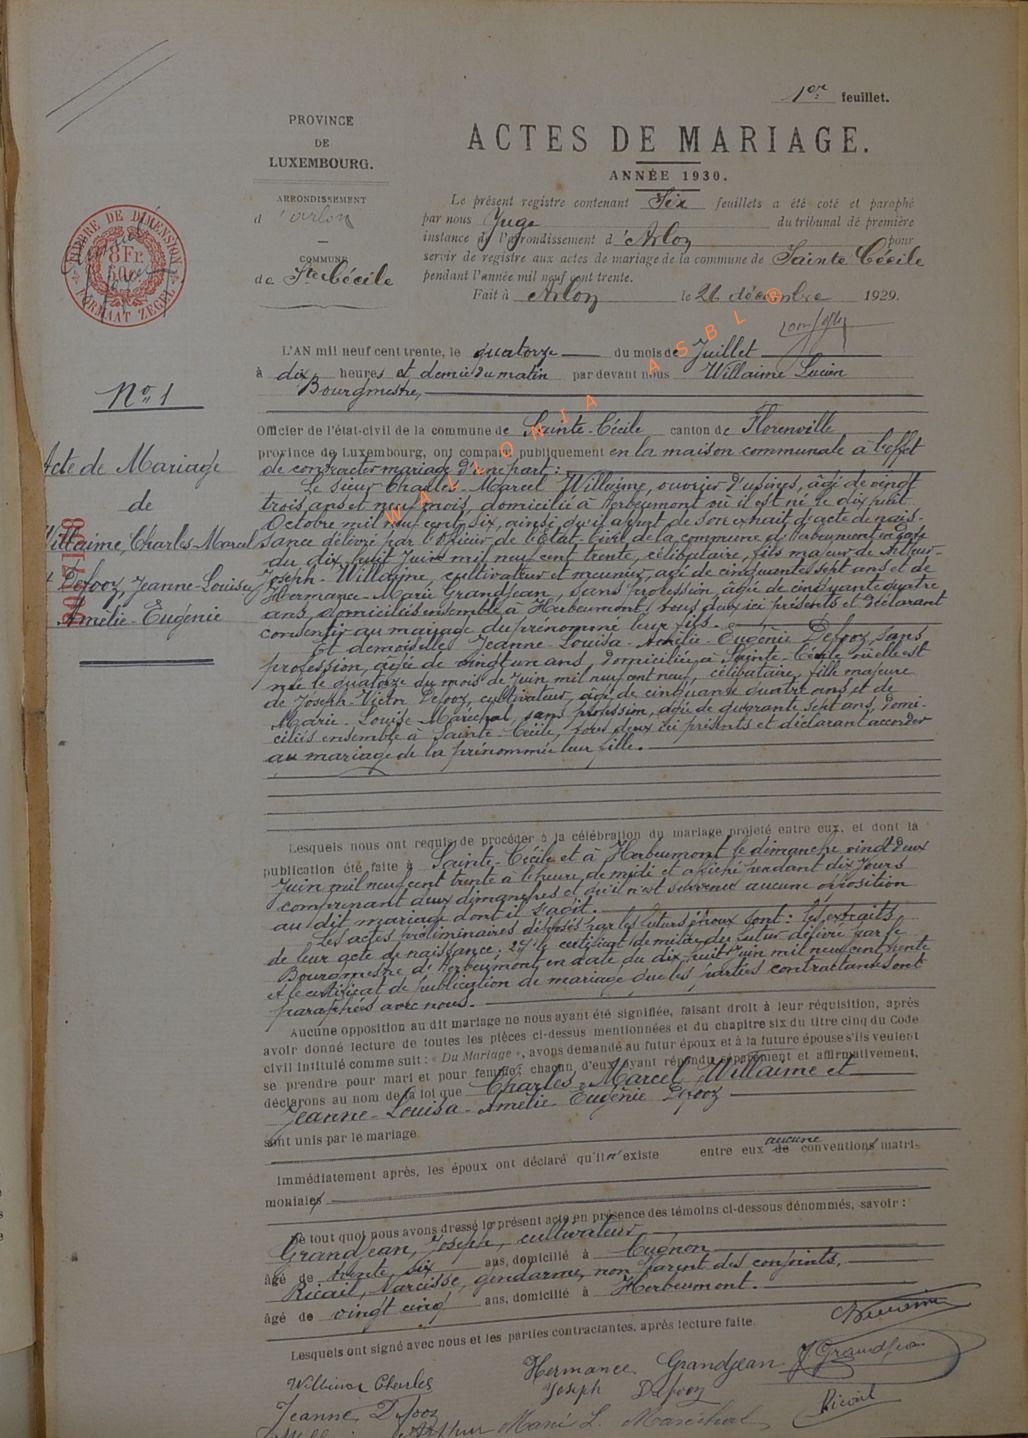 1er feuillet.
PROVINCE
DE
LUXEMBOURG.
ARRONDISSEMENT
d'Arlon
COMMUNE
de Ste Cécile
ACTES DE MARIAGE.
ANNÉE 1930.
Le présent registre contenant Six feuillets a été coté et paraphé
par nous Juge du tribunal de première
instance de l'arrondissement d'Arlon pour
servir de registre aux actes de mariage de la commune de Sainte Cécile
pendant l'année mil neuf cent trente.
Fait à Arlon le 26 décembre 1929.
TIMBRE DE DIMENSION
8 Fr.
FORMAAT ZEGEL
WALLONIA ASBL ©
No 1
Acte de Mariage
de
Willaime, Charles-Marcel
& Defooz, Jeanne-Louisa
Amélie-Eugénie
L'AN mil neuf cent trente, le quatorze du mois de Juillet
à dix heures et demie du matin par devant nous Willaime Lucien
Bourgmestre,
Officier de l'état-civil de la commune de Sainte-Cécile canton de Florenville
province de Luxembourg, ont comparu publiquement en la maison communale à l'effet
de contracter mariage d'une part :
Le sieur Charles-Marcel Willaime, ouvrier d'usines, âgé de vingt
trois ans et neuf mois, domicilié à Herbeumont où il est né le dix huit
Octobre mil neuf cent six, ainsi qu'il appert de son extrait d'acte de nais-
sance délivré par l'Officier de l'Etat-Civil de la commune d'Herbeumont en date
du dix huit Juin mil neuf cent trente, célibataire, fils majeur de Arthur-
Joseph-Willaime, cultivateur et meunier, âgé de cinquante sept ans et de
Hermance-Marie Grandjean, sans profession, âgée de cinquante quatre
ans, domiciliés ensemble à Herbeumont, tous deux ici présents et déclarant
consentir au mariage du prénommé leur fils.
Et demoiselle Jeanne-Louisa-Amélie-Eugénie Defooz, sans
profession, âgée de vingt un ans, domiciliée à Sainte-Cécile où elle est
née le quatorze du mois de Juin mil neuf cent neuf, célibataire, fille majeure
de Joseph-Victor Defooz, cultivateur, âgé de cinquante quatre ans et de
Marie-Louise-Maréchal, sans profession, âgée de quarante sept ans, domi-
ciliés ensemble à Sainte-Cécile, tous deux ici présents et déclarant accorder
au mariage de la prénommée leur fille.
Lesquels nous ont requis de procéder à la célébration du mariage projeté entre eux, et dont la
publication été faite à Sainte-Cécile et à Herbeumont le dimanche vingt deux
Juin mil neuf cent trente à l'heure de midi et affiché pendant dix jours
comprenant deux dimanches et qu'il n'est survenu aucune opposition
au dit mariage dont il s'agit.
Les actes préliminaires déposés par les futurs époux sont : les extraits
de leur acte de naissance ; 2° le certificat de milice du futur délivré par le
Bourgmestre d'Herbeumont en date du dix huit Juin mil neuf cent trente
et le certificat de publication de mariage que les parties contractantes ont
paraphés avec nous.
Aucune opposition au dit mariage ne nous ayant été signifiée, faisant droit à leur réquisition, après
avoir donné lecture de toutes les pièces ci-dessus mentionnées et du chapitre six du titre cinq du Code
civil intitulé comme suit : « Du Mariage », avons demandé au futur époux et à la future épouse s'ils veulent
se prendre pour mari et pour femme ; chacun d'eux ayant répondu séparément et affirmativement,
déclarons au nom de la loi que Charles-Marcel Willaime et
Jeanne-Louisa-Amélie-Eugénie Defooz
sont unis par le mariage
Immédiatement après, les époux ont déclaré qu'il n'existe entre eux aucune de conventions matri-
moniales
De tout quoi nous avons dressé le présent acte en présence des témoins ci-dessous dénommés, savoir :
Grandjean, Joseph, cultivateur
âgé de trente six ans, domicilié à Cugnon
Ricail, Narcisse, gendarme, non parent des conjoints,
âgé de vingt cinq ans, domicilié à Herbeumont.
Lesquels ont signé avec nous et les parties contractantes, après lecture faite.
Hermance Grandjean J Grandjean
Willaime Charles Joseph Defooz Ricail
Jeanne Defooz
Arthur Marie L. Maréchal